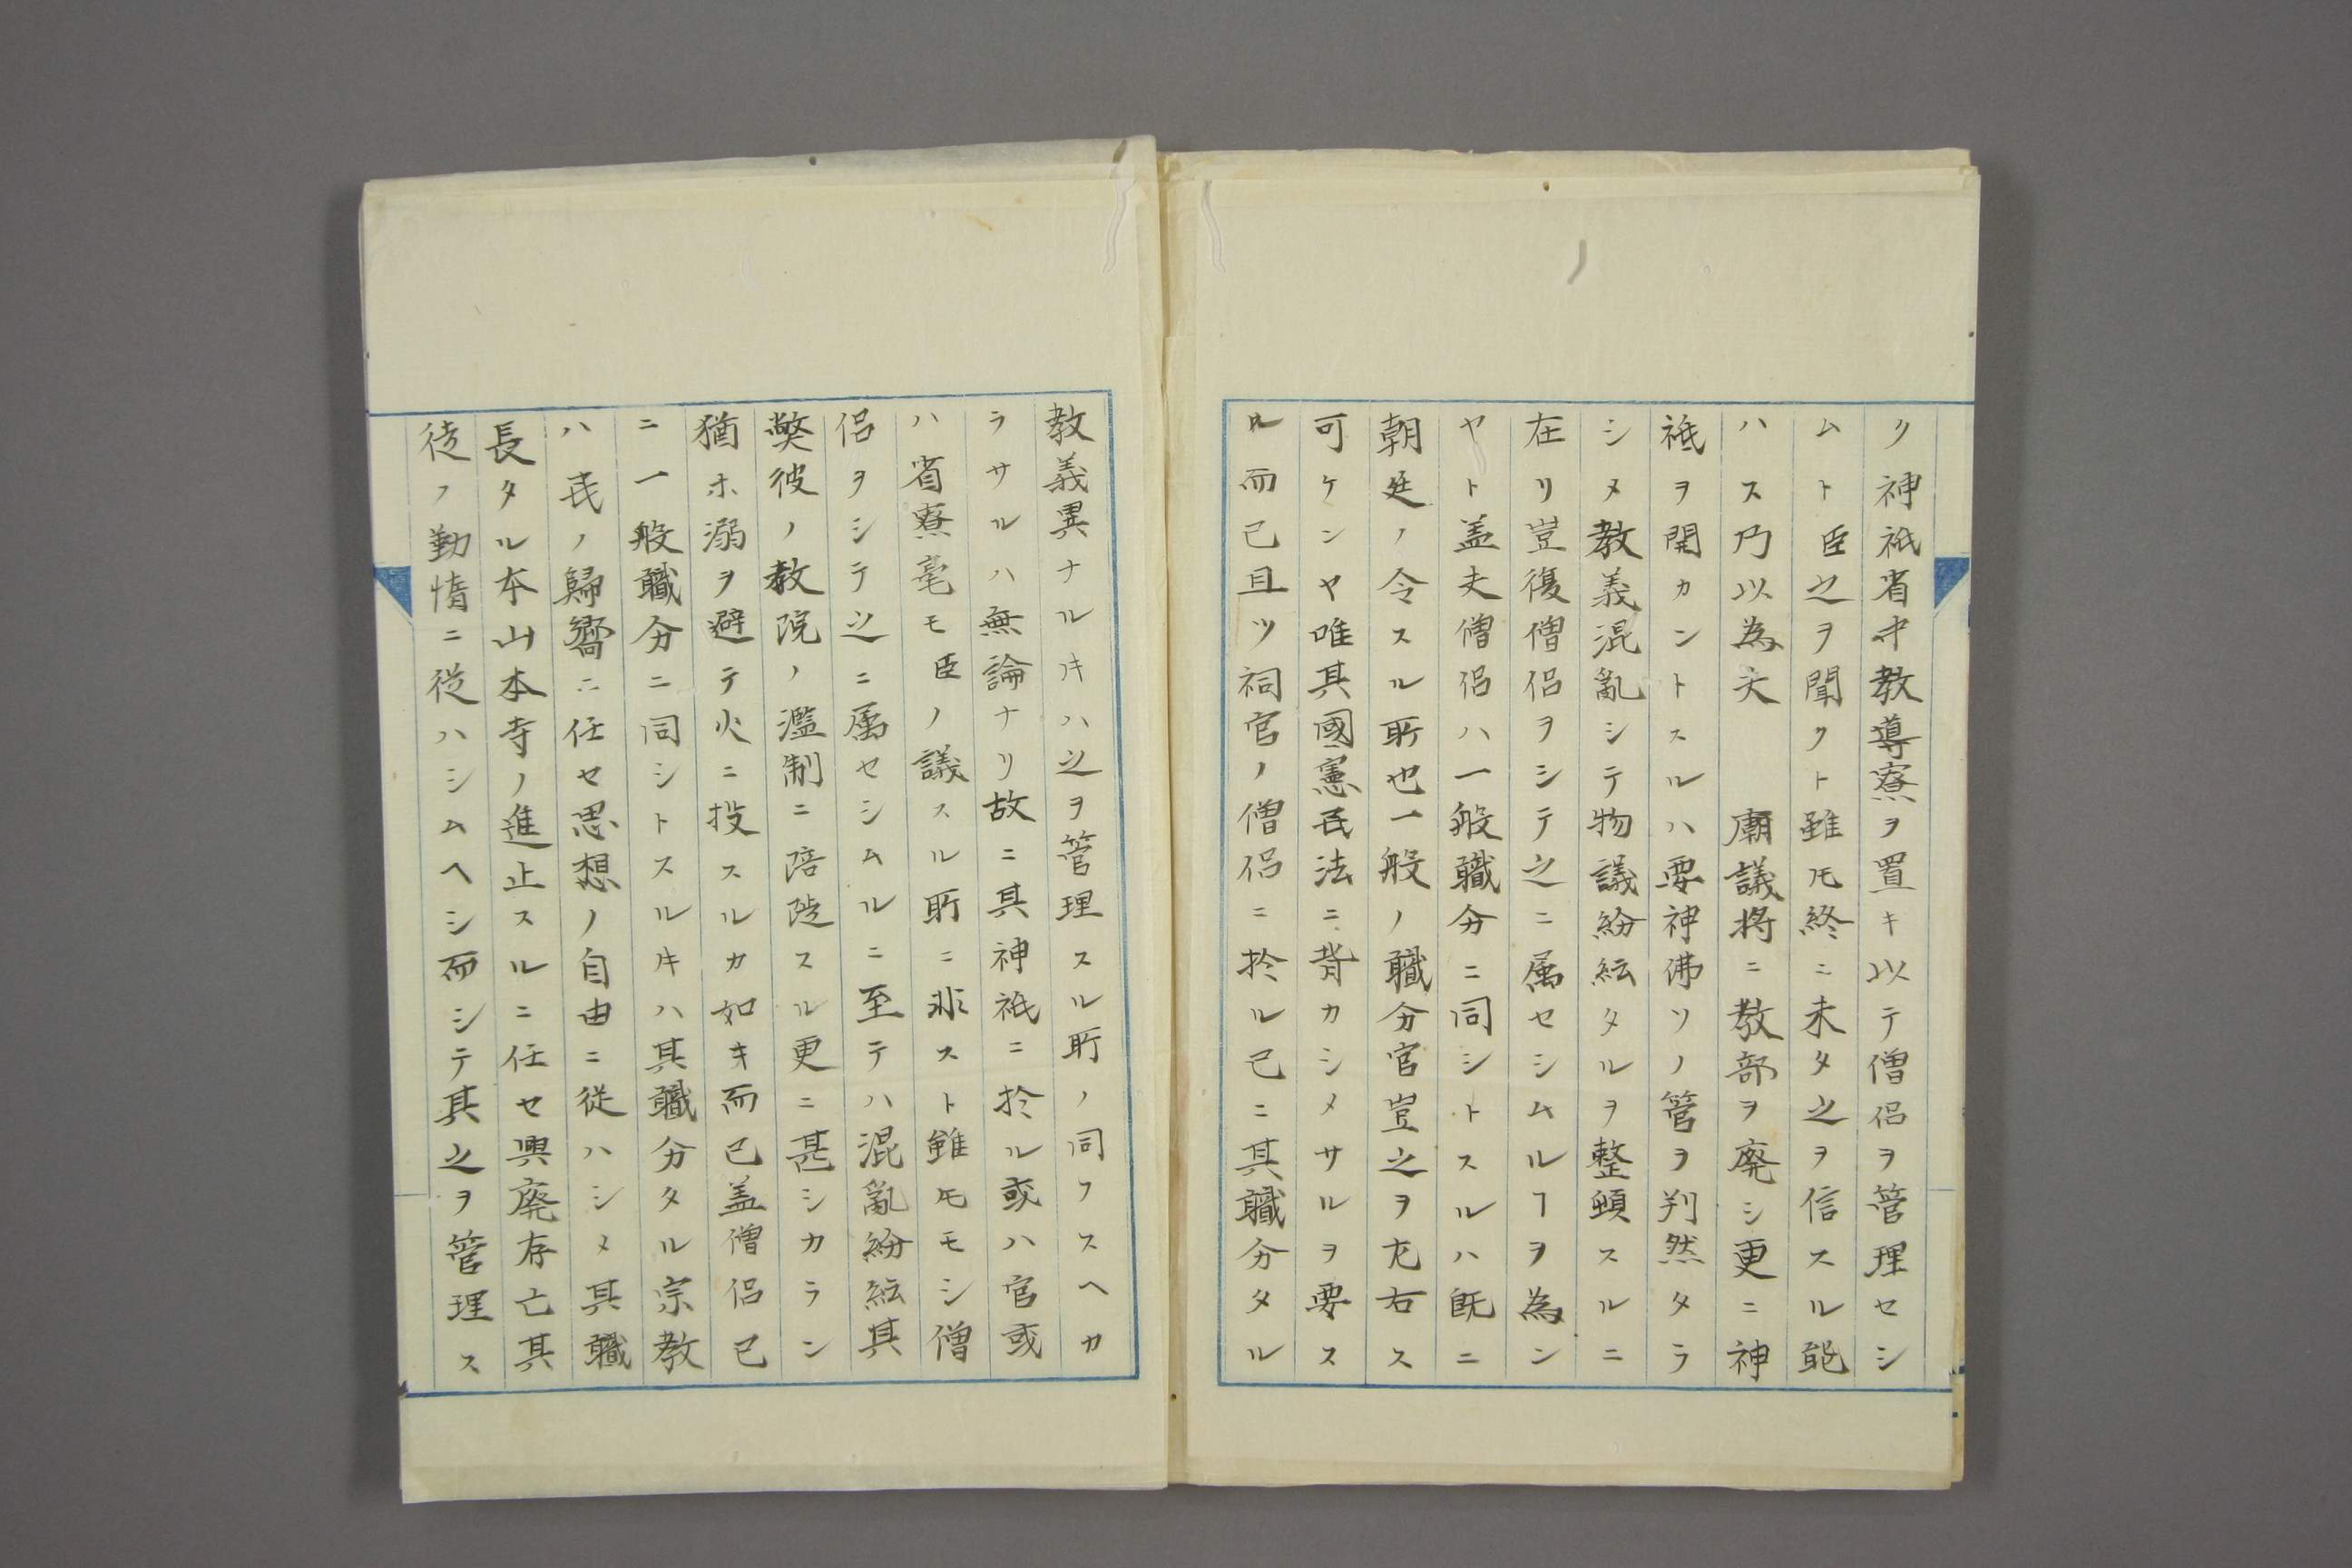 ク神祇省中教導寮ヲ置キ以テ僧侶ヲ管理セシ
ムト臣之ヲ聞クト雖𪜈終ニ未タ之ヲ信スル能
ハス乃以為夫　廟議将ニ教部ヲ廃シ更ニ神
祇ヲ開カントスルハ要神佛ソノ管ヲ判然タラ
シメ教義混亂シテ物議紛紜タルヲ整頓スルニ
在リ豈復僧侶ヲシテ之ニ属セシムルヿヲ為ン
ヤト盖夫僧侶ハ一般職分ニ同シトスルハ既ニ
朝廷ノ令スル所也一般ノ職分官豈之ヲ左右ス
可ケンヤ唯其國憲民法ニ背カシメサルヲ要ス
ル而已且ツ祠官ノ僧侶ニ於ル已ニ其職分タル
教義異ナル𪜈ハ之ヲ管理スル所ノ同フスヘカ
ラサルハ無論ナリ故ニ其神祇ニ於ル或ハ官或
ハ省寮毫モ臣ノ議スル所ニ非スト雖𪜈モシ僧
侶ヲシテ之ニ属セシムルニ至テハ混亂紛紜其
獘彼ノ教院ノ濫制ニ陪蓰スル更ニ甚シカラン
猶ホ溺ヲ避テ火ニ投スルカ如キ而已盖僧侶已
ニ一般職分ニ同シトスル𪜈ハ其職分タル宗教
ハ民ノ歸嚮ニ任セ思想ノ自由ニ従ハシメ其職
長タル本山本寺ノ進止スルニ任セ興廃存亡其
徒ノ勤惰ニ従ハシムヘシ而シテ其之ヲ管理ス